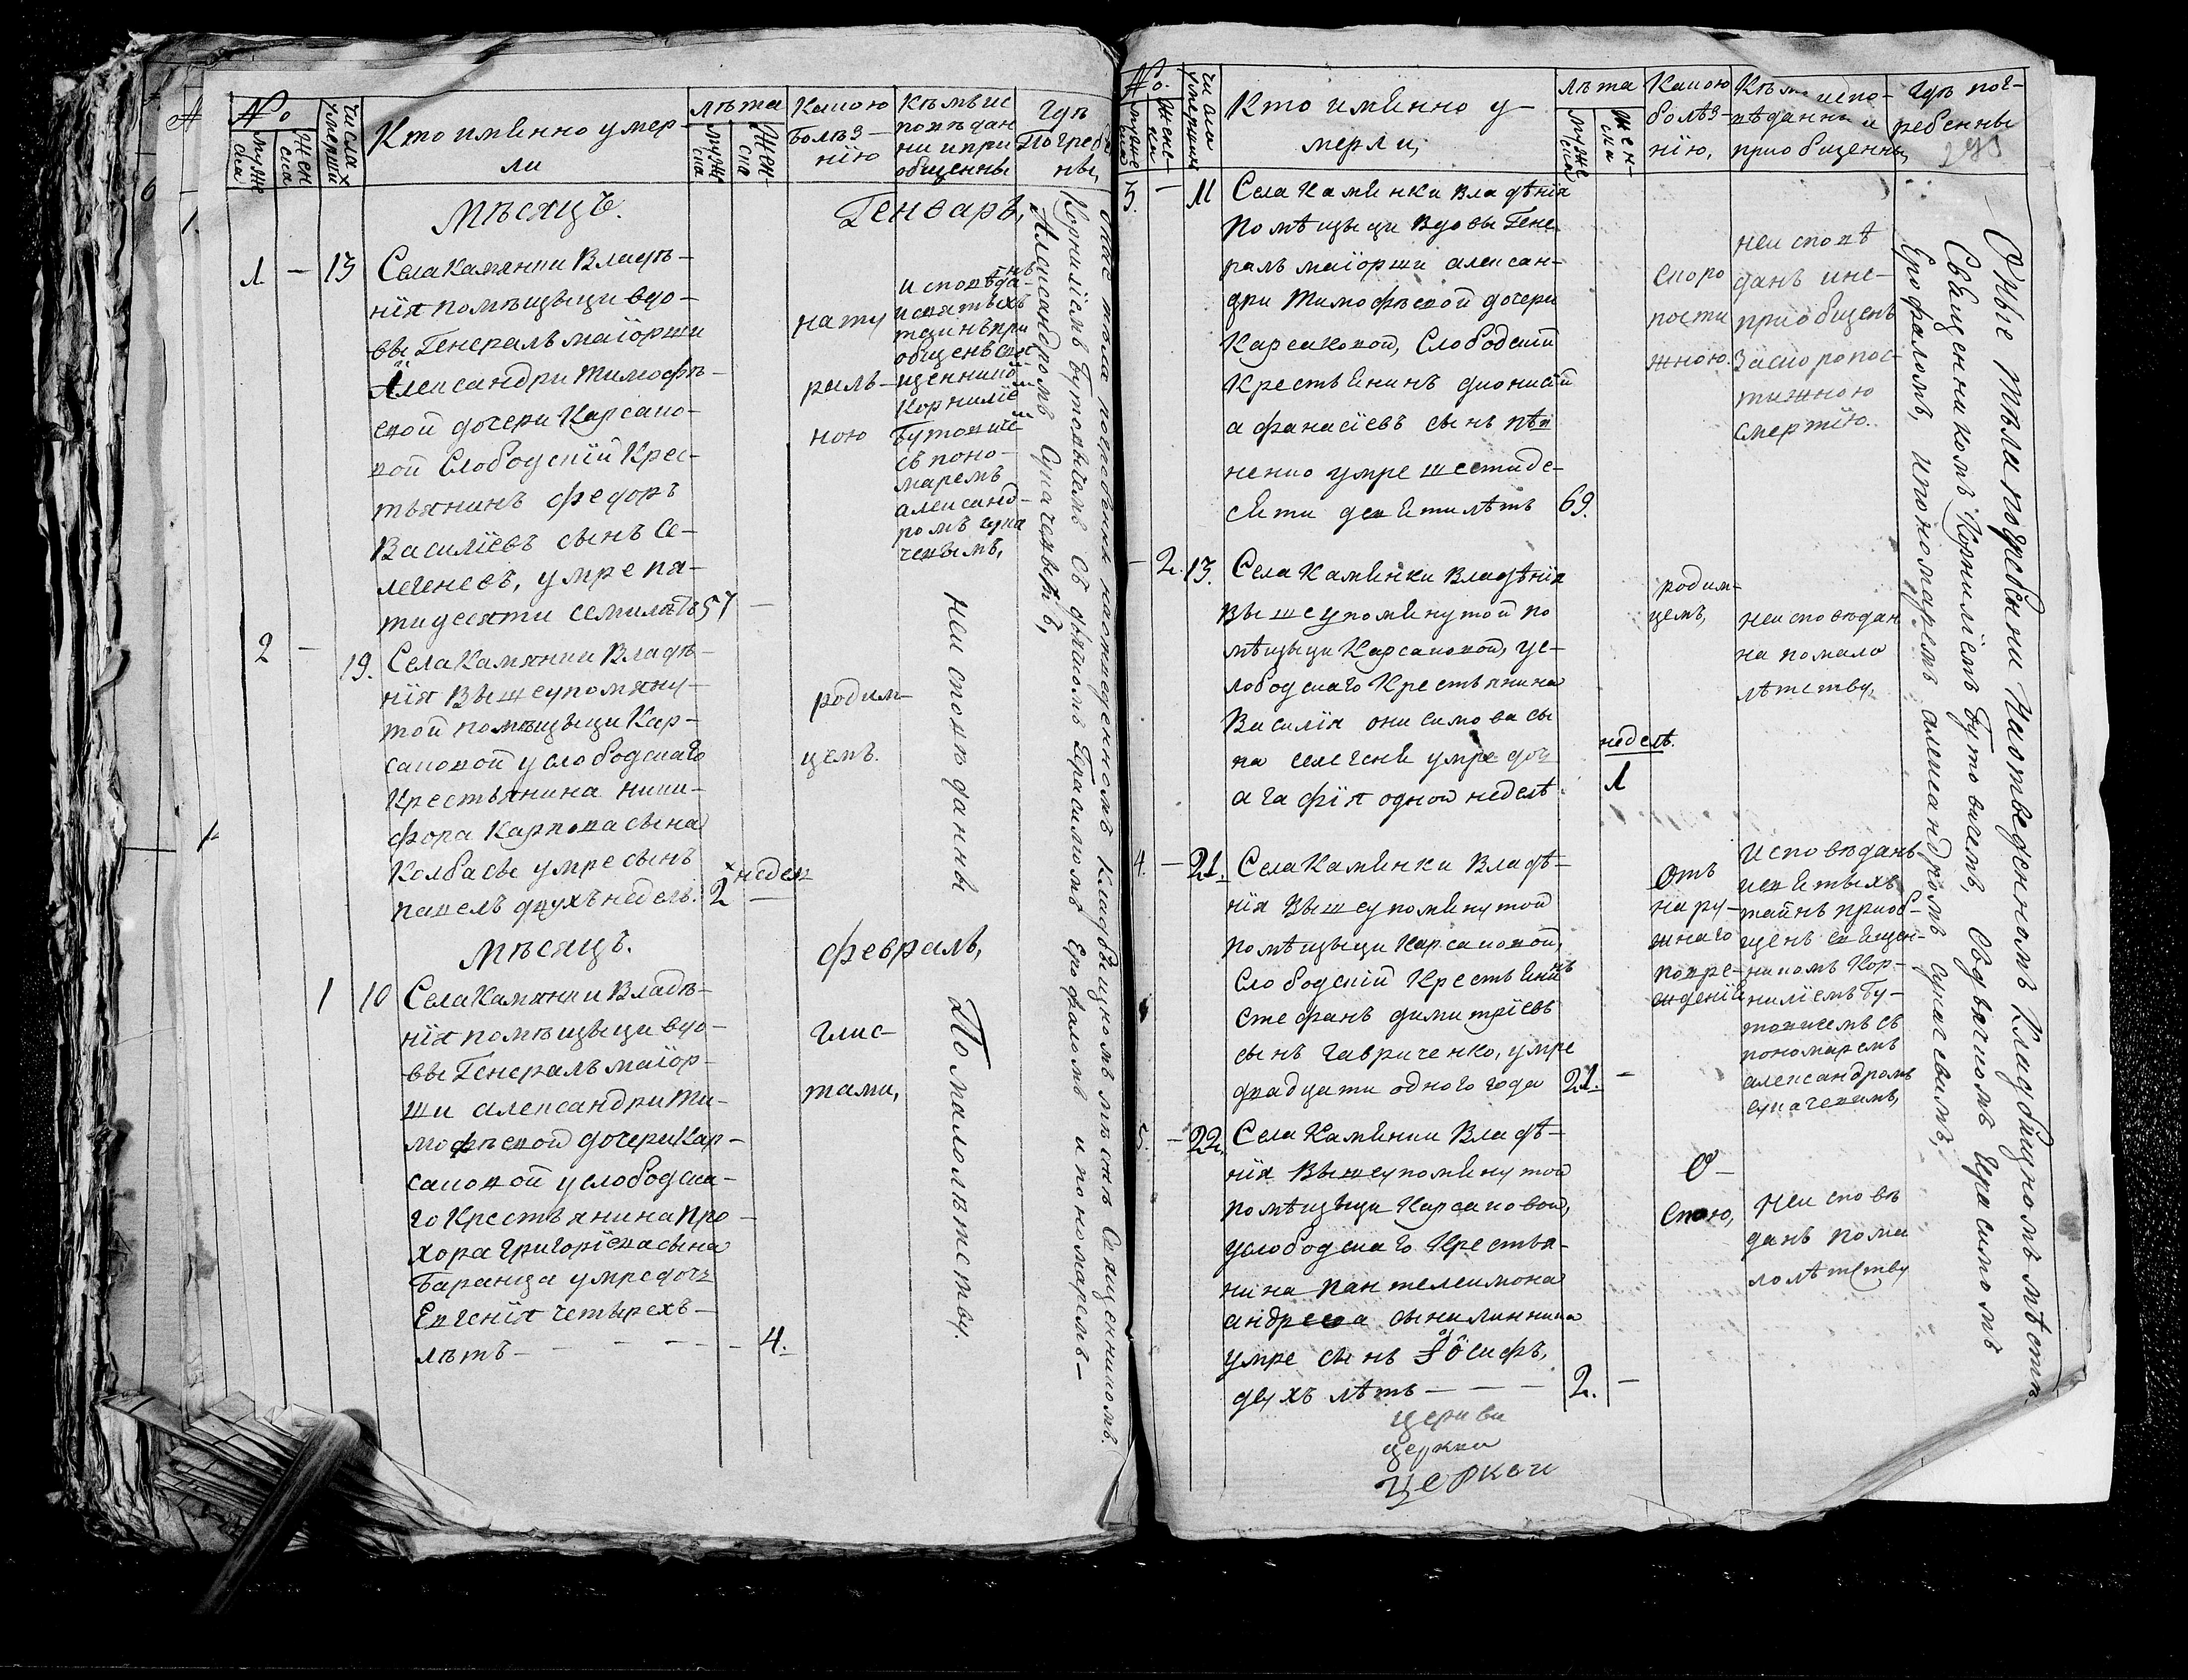 №
мужеска
женска
числа умерших
Кто имянно умер-
ли
лѣта
мужеска
женска
Какою
Болѣз-
нію
Кѣмъ ис
повѣдан
ни и при
общенны
Гдѣ
Погребе
нны,
Мѣсяцъ.
Генваръ,
1 — 13 Села Камянки Владѣ-
нія помѣщыци вдо-
вы Генералъ маіорши
Александри Тимофѣ-
евой дочери Карсако-
вой Слободскій Крес-
тьянинъ Федоръ
Василіевъ сынъ Се-
легеневъ, умре пя-
тидесяти семи лѣтъ 57 —
нату
раль-
ною
исповѣданъ
и святыхъ
таинъ при
общенъ свя
щенником
Корниліем
Бутовичем
съ поно-
маремъ
александ-
ромъ сука
чевымъ,
2 — 19. Села Камянки Владѣ-
нія вышеупомяну-
той помѣщыци Кар-
саковой у слободскаго
Крестьянина ники-
фора Карпова сына
Колбасы умре сынъ
павелъ двухъ недель. 2 недел —
родим-
цемъ.
Неисповѣданны
По малолѣтству.
Мѣсяцъ.
февраль,
1 10 Села Камянки Владѣ-
нія помѣщыци вдо-
вы Генералъ маіор-
ши александри Ти-
мофѣевой дочери Кар-
саковой у слободска-
го Крестьянина Про-
хора григоріева сына
Баранца умре дочь
Евгенія четырехъ-
лѣтъ — — — — 4.
глис-
тами,
Оные тѣла погребени на отведенномъ кладбищномъ мѣстѣ Священникомъ
Корниліемъ Бутовичемъ съ дячкомъ Герасимомъ Ерофаломъ и пономаремъ —
Александромъ Сукачевымъ,
№.
мужеска
женска
числа умерших
Кто имянно у-
мерли,
лѣта
мужеска
женска
Какою
болѣз-
нію,
Кѣмъ испо-
вѣданны и
приобщенны,
Гдѣ пог-
ребенны
3. — 11 Села Камянки владѣнія
помѣщыци вдовы Гене
ралъ маіорши алексан-
дри Тимофѣевой дочери
Карсаковой, Слободскій
Крестьянинъ дионисій
афанасіевъ сынъ
ненко умре шестиде-
сяти девяти лѣтъ 69.
скоро
пости
жною.
неисповѣ
данъ и не-
приобщенъ
за скоропос-
тижною
смертію.
— 2. 13. Села Камянки Владѣнія
вышеупомянутой по
мѣщыци Карсаковой, ус-
лободскаго Крестьянина
Василія онисимова сы
на селегеня умре доч
агафія одной неделѣ.
неделѣ.
1
родим-
цемъ,
неисповѣдан
на по мало
лѣтству,
4. — 21. Села Камянки Владѣ-
нія вышеупомянутой
помѣщыци Карсаковой,
Слободскій Крестьянинъ
Стефанъ димитріевъ
сынъ гавриченко, умре
двадцати одного года 21. —
Отъ
нару-
жнаго
повре-
жденія
Исповѣданъ
и святыхъ
таинъ приоб-
щенъ Священ-
никомъ Кор-
ниліемъ Бу-
товичемъ съ
пономаремъ
александромъ
сукачевимъ,
5. — 22. Села Камянки Владѣ-
нія вышеупомянутой
помѣщыци Карсаковой,
услободскаго Крестья-
нина пантелеимона
андреева сына линника
умре сынъ Іосифъ,
двухъ лѣтъ — — — 2. —
О-
спою,
Неисповѣ
данъ по ма
лолѣтству
Оные тѣла погребени На отведенномъ Кладбищномъ мѣстѣ
Священникомъ Корниліемъ Бутовичемъ, Съ дячкомъ Герасимомъ
Ерофаломъ, и пономаремъ александромъ сукачевимъ,
церкви
церкви
Церкви